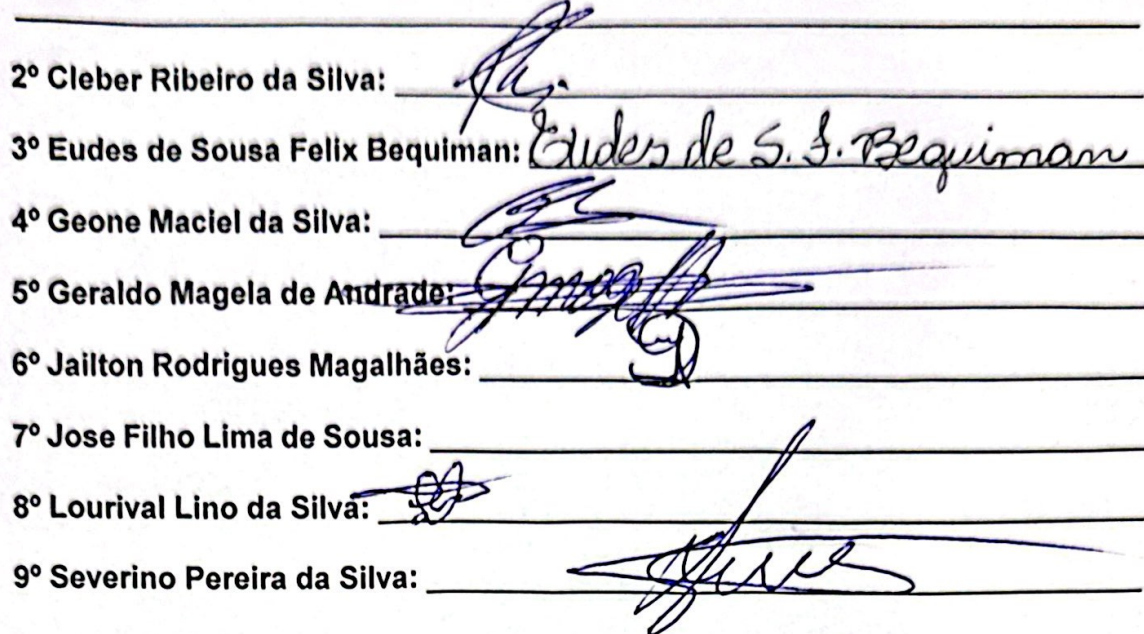 2º Cleber Ribeiro da Silva:
3º Eudes de Sousa Felix Bequiman: Eudes de S. F. Bequiman
4º Geone Maciel da Silva:
5º Geraldo Magela de Andrade:
6º Jailton Rodrigues Magalhães:
7º Jose Filho Lima de Sousa:
8º Lourival Lino da Silva:
9º Severino Pereira da Silva: